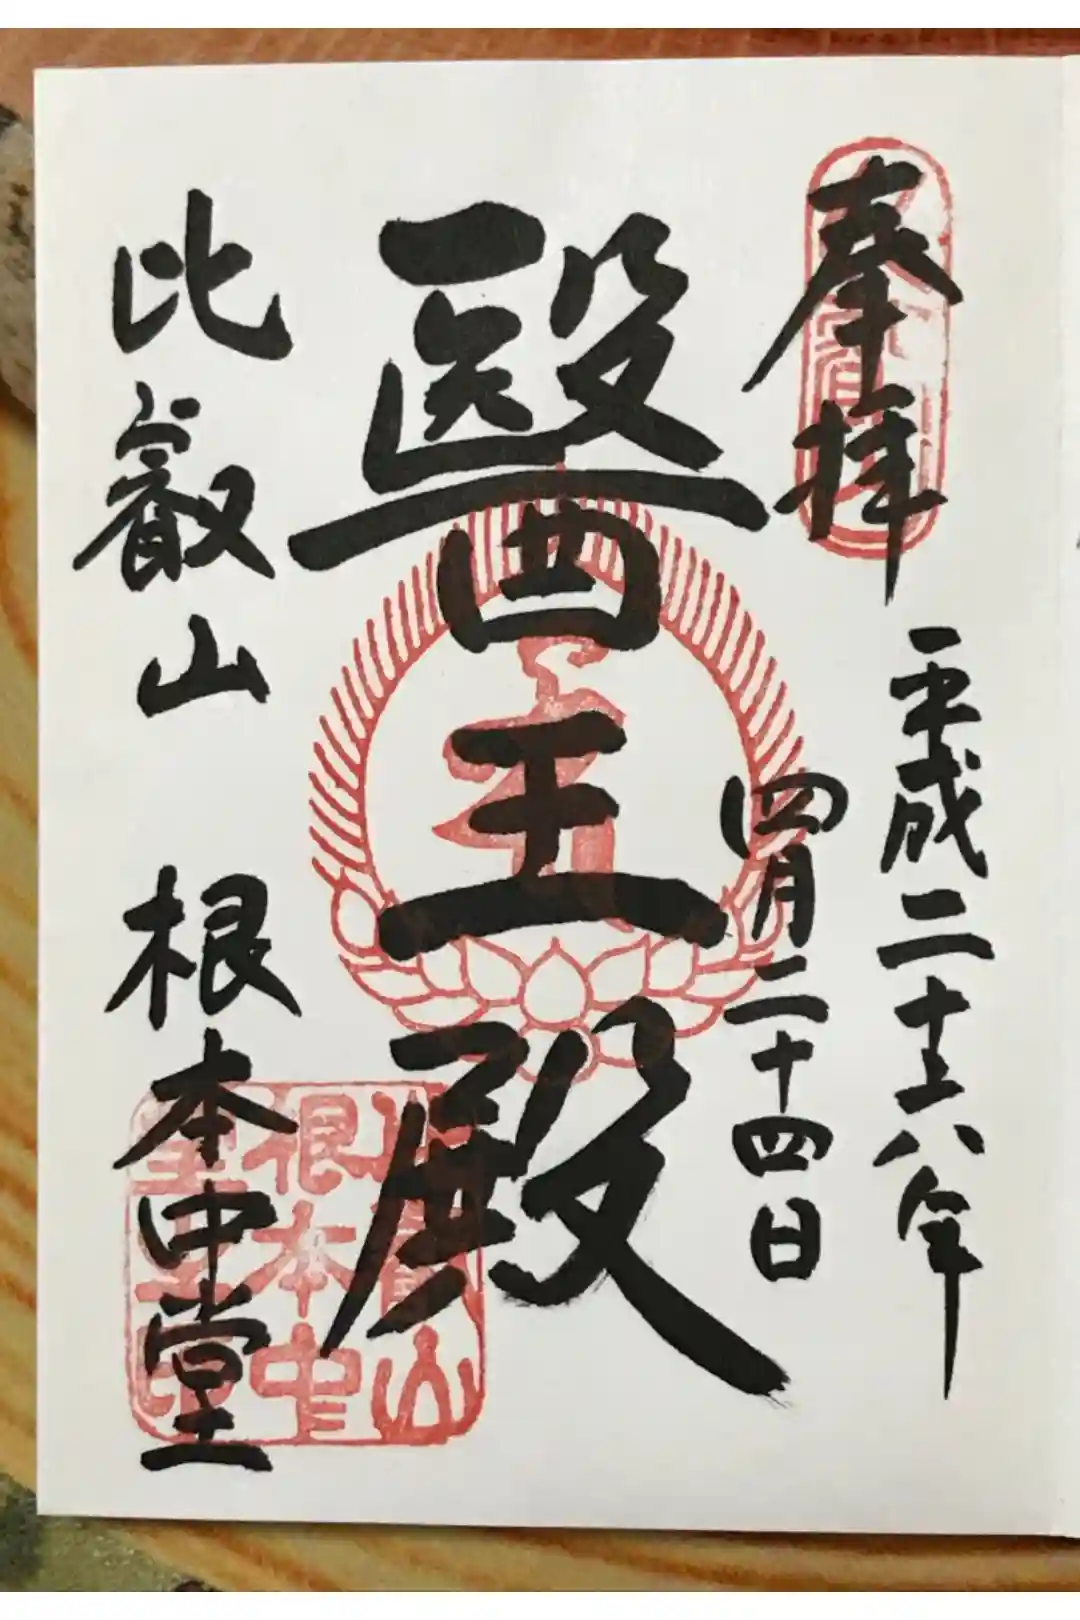 奉拝
平成二十六年
四月二十四日
醫王殿
比叡山 根本中堂
比叡山
根本中